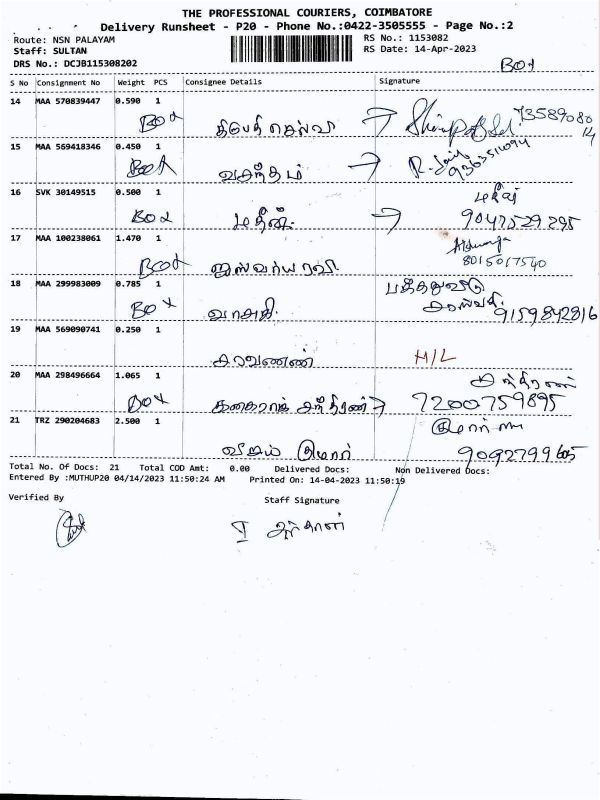 THE PROFESSIONAL COURIERS, COIMBATORE
Delivery Runsheet - P20 - Phone No.:0422-3505555 - Page No.:2
Route: NSN PALAYAM RS No.: 1153082
Staff: SULTAN RS Date: 14-Apr-2023
DRS No.: DCJB115308202 Box
S No Consignment No Weight PCS Consignee Details Signature
14 MAA 570839447 0.590 1 73589080
Box 14
15 MAA 569418346 0.450 1
Box வசந்தம் 9363511094
16 SVK 30149515 0.500 1
Box 9047529295
17 MAA 100238061 1.470 1
Box ஐஸ்வர்யா ரவி 8015017540
18 MAA 299983009 0.785 1
Box 9159842816
19 MAA 569090741 0.250 1
சரவணன் H/L
20 MAA 298496664 1.065 1
Box 7200759895
21 TRZ 290204683 2.500 1
9092799605
Total No. Of Docs: 21 Total COD Amt: 0.00 Delivered Docs: Non Delivered Docs:
Entered By :MUTHUP20 04/14/2023 11:50:24 AM Printed On: 14-04-2023 11:50:19
Verified By Staff Signature